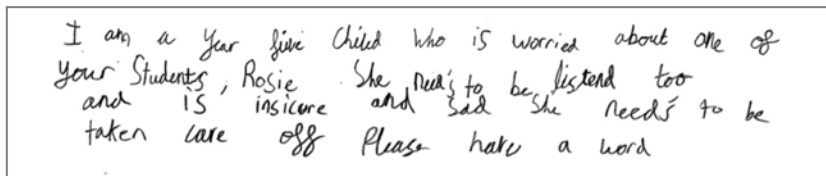 I am a Year five Chiled who is worried about one of
your Students, Rosie. She need's to be listend too
and is insicure and sad she need's to be
taken care off Please have a word